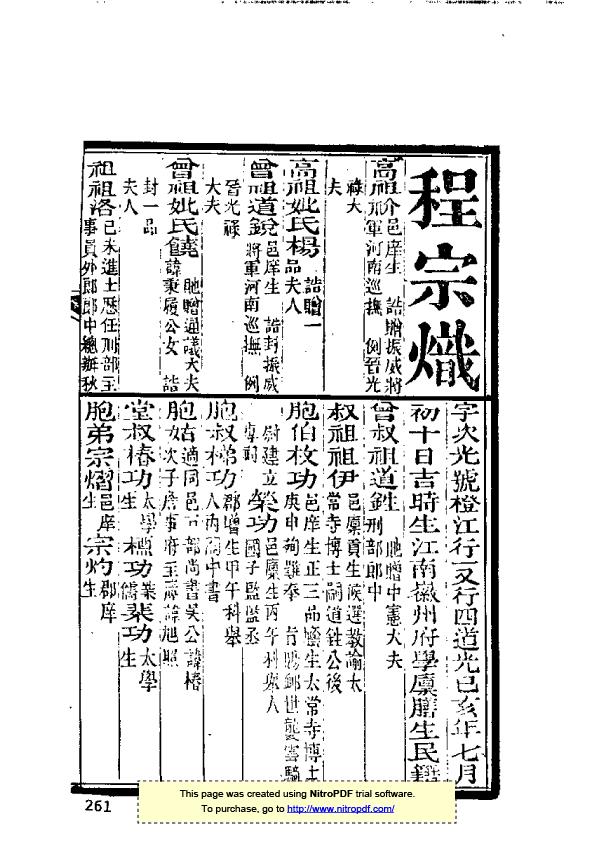 程宗熾
字次光號橙江行一又行四道光己亥年七月
初十日吉時生江南徽州府學廩膳生民籍
高祖介邑庠生 誥贈振威將
軍河南巡撫 例晉光
祿大
夫
高祖妣氏楊誥贈一
品夫人
曾祖道銳邑庠生 誥封振威
將軍河南巡撫 例
晉光祿
大夫
曾祖妣氏饒 貤贈通議大夫
諱秉履公女 誥
封一品
夫人
祖祖洛己未進士歷任刑部主
事員外郎郎中總辦秋
曾叔祖道鉎 貤贈中憲大夫
刑部郎中
叔祖祖伊邑廩貢生候選教諭太
常寺博士嗣道鉎公後
胞伯枚功邑庠生正三品廕生太常寺博士
庚申殉難奉 旨賜卹世襲雲騎
尉建立
專祠 榮功邑廩生丙午科舉人
國子監監丞
胞叔弟功郡增生甲午科舉
人內閣中書
胞姑適同邑工部尚書吳公諱椿
次子詹事府主簿諱旭照
堂叔椿功太學
生 功業
儒 棐功太學
生
胞弟宗熠邑庠
生 宗灼郡庠
生
261
This page was created using NitroPDF trial software.
To purchase, go to http://www.nitropdf.com/